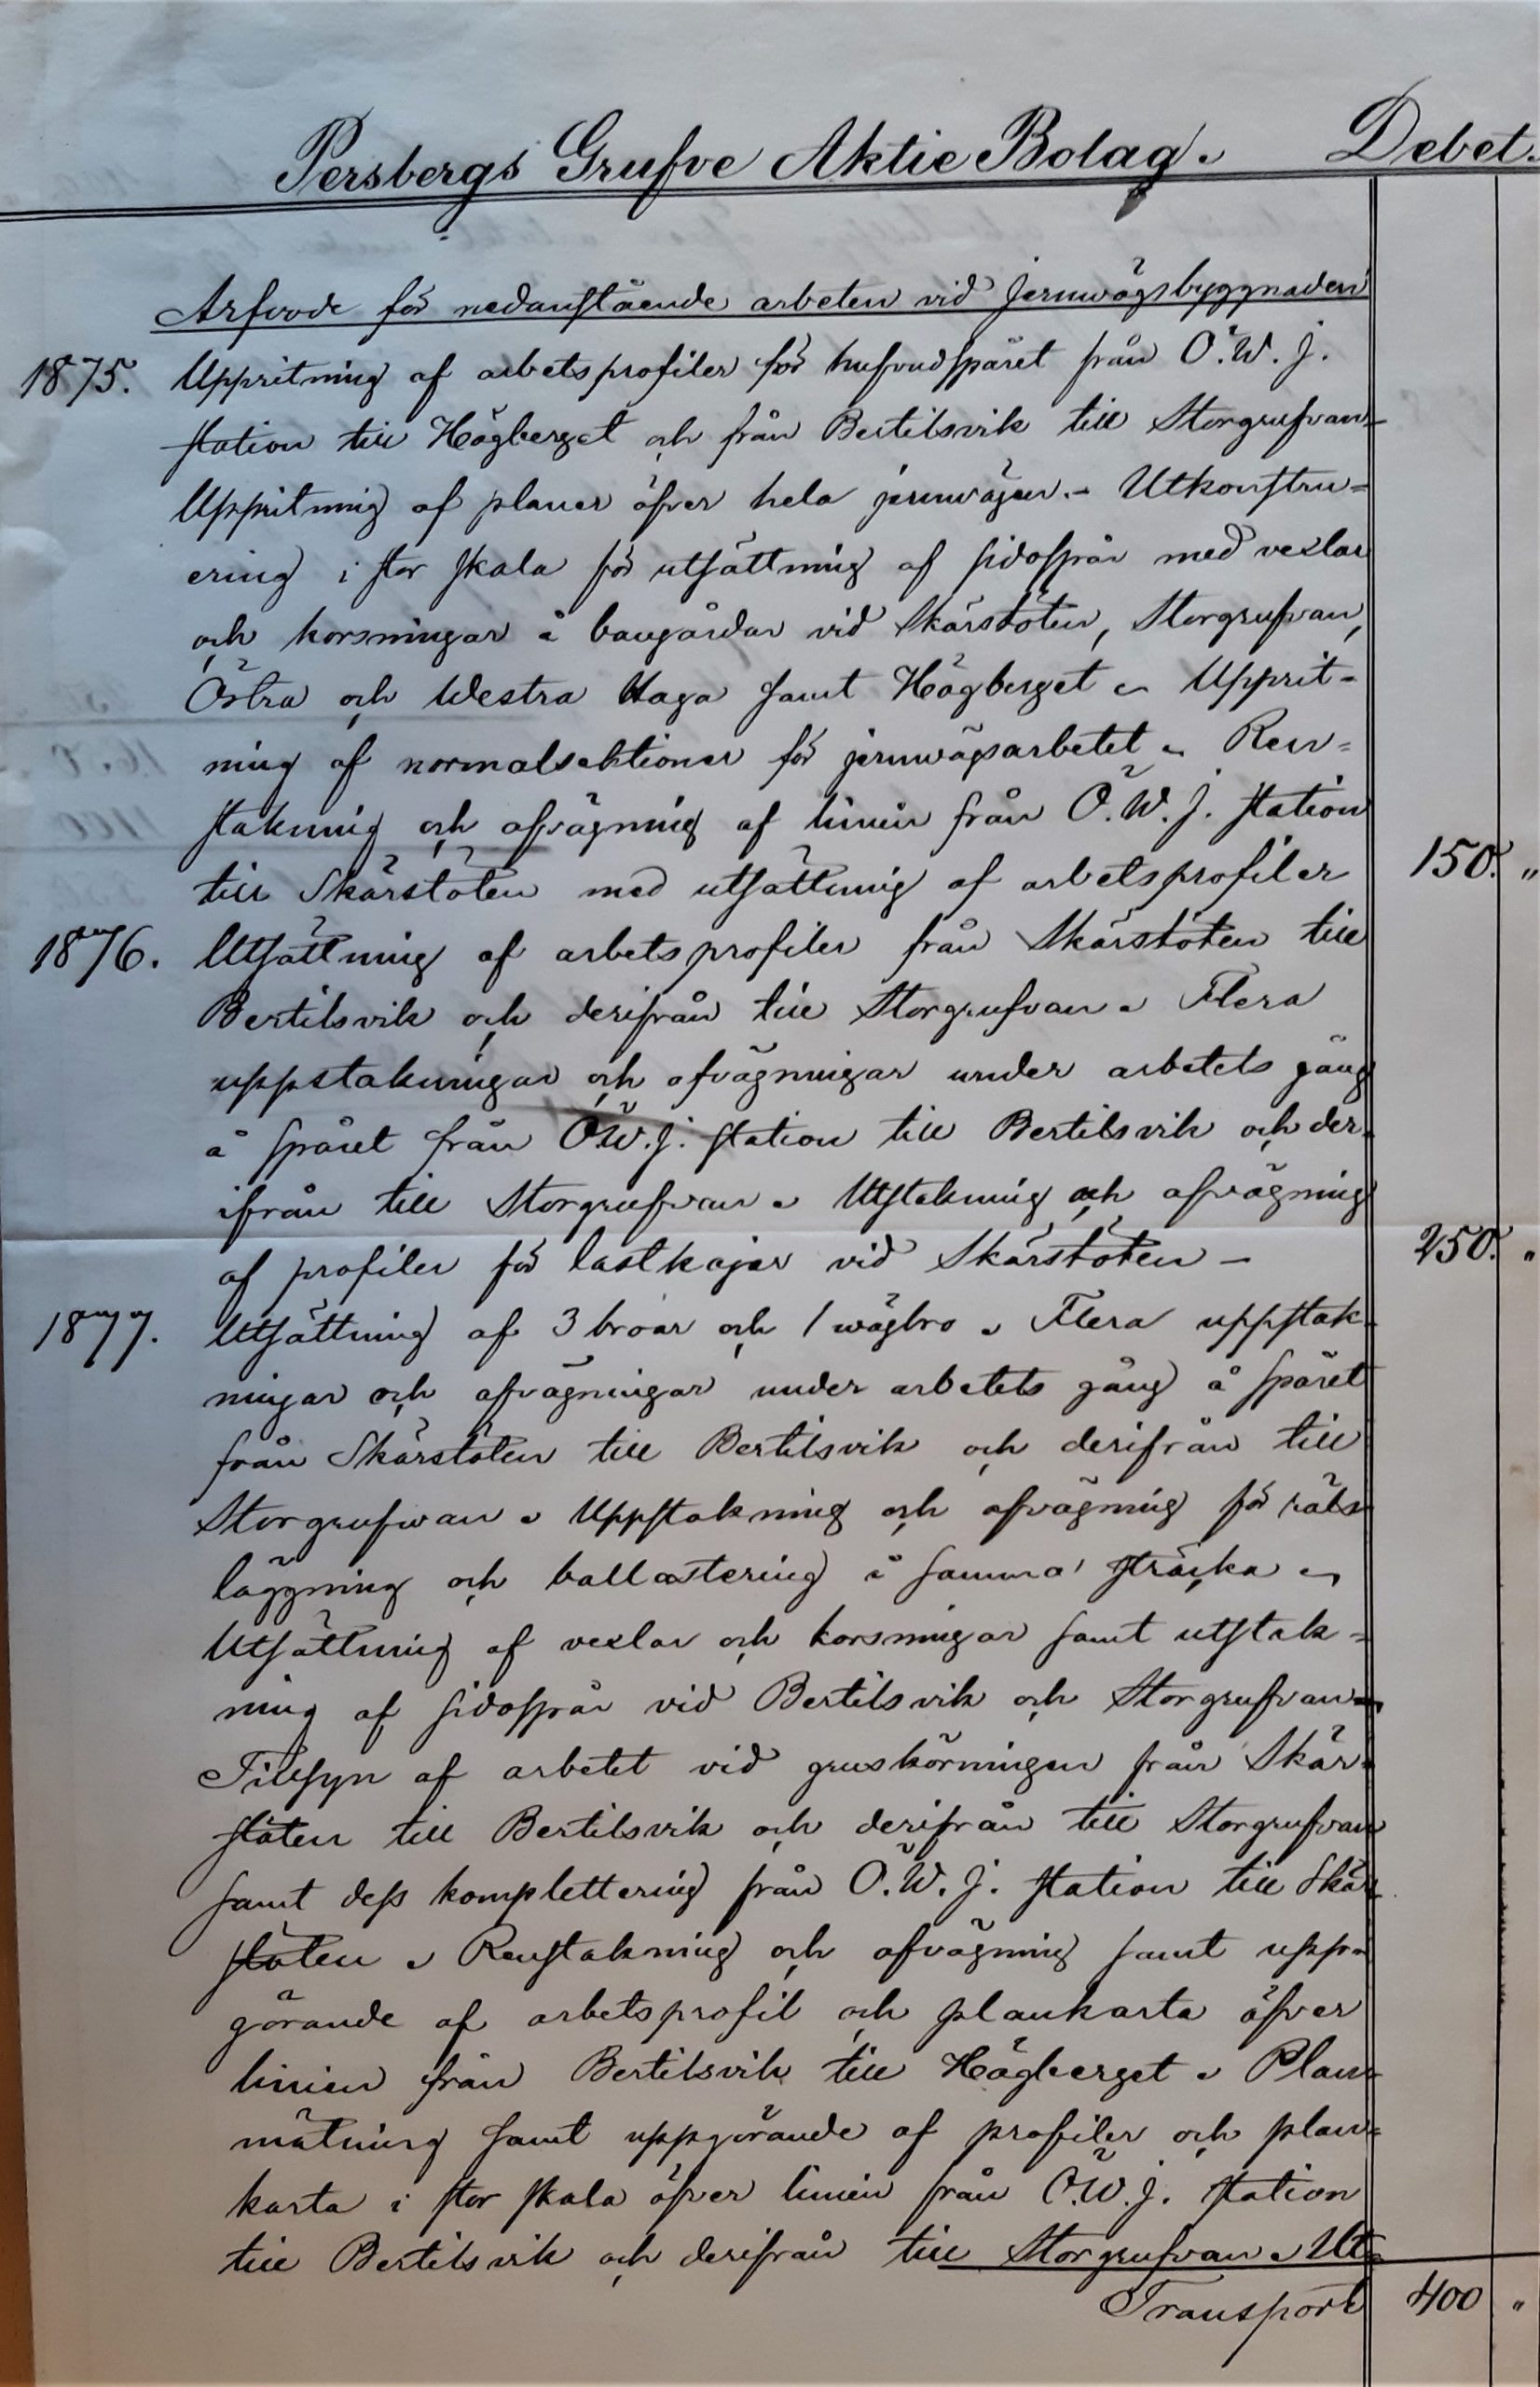 Persbergs Grufve Aktie Bolag. Debet.
Arfvode för nedanstående arbeten vid jernvägsbyggnaden
1875. Uppritning af arbetsprofiler för hufvudspåret från Ö.W.J.
station till Högberget och från Bertilsvik till Storgrufvan -
Uppritning af planer öfver hela jernvägen. - Utkonstru=
ering i stor skala för utsättning af sidospår med vexlar
och korsningar å bangårdar vid Skärstöten, Storgrufvan,
Östra och Westra Haga samt Högberget - Upprit-
ning af normalsektioner för jernvägsarbetet - Ren=
stakning och afvägning af linien från Ö.W.J. station
till Skärstöten med utsättning af arbetsprofiler 150. "
1876. Utsättning af arbetsprofiler från Skärstöten till
Bertilsvik och derifrån till Storgrufvan - Flera
uppstakningar och afvägningar under arbetets gång
å spåret från Ö.W.J. station till Bertilsvik och der-
ifrån till Storgrufvan - Utstakning och afvägning
af profiler för lastkajer vid Skärstöten - 250. "
1877. Utsättning af 3 broar och 1 wägbro - Flera uppstak-
ningar och afvägningar under arbetets gång å spåret
från Skärstöten till Bertilsvik och derifrån till
Storgrufvan - Uppstakning och afvägning för räls-
läggning och ballastering å samma sträcka -
Utsättning af vexlar och korsningar samt utstak=
ning af sidospår vid Bertilsvik och Storgrufvan -
Tillsyn af arbetet vid gruskörningen från Skär-
stöten till Bertilsvik och derifrån till Storgrufvan
samt dess komplettering från Ö.W.J. station till Skär-
stöten - Renstakning och afvägning samt upp-
görande af arbetsprofil och plankarta öfver
linien från Bertilsvik till Högberget - Plan-
mätning samt uppgörande af profiler och plan-
karta i stor skala öfver linien från Ö.W.J. station
till Bertilsvik och derifrån till Storgrufvan - Ut-
Transport 400 "